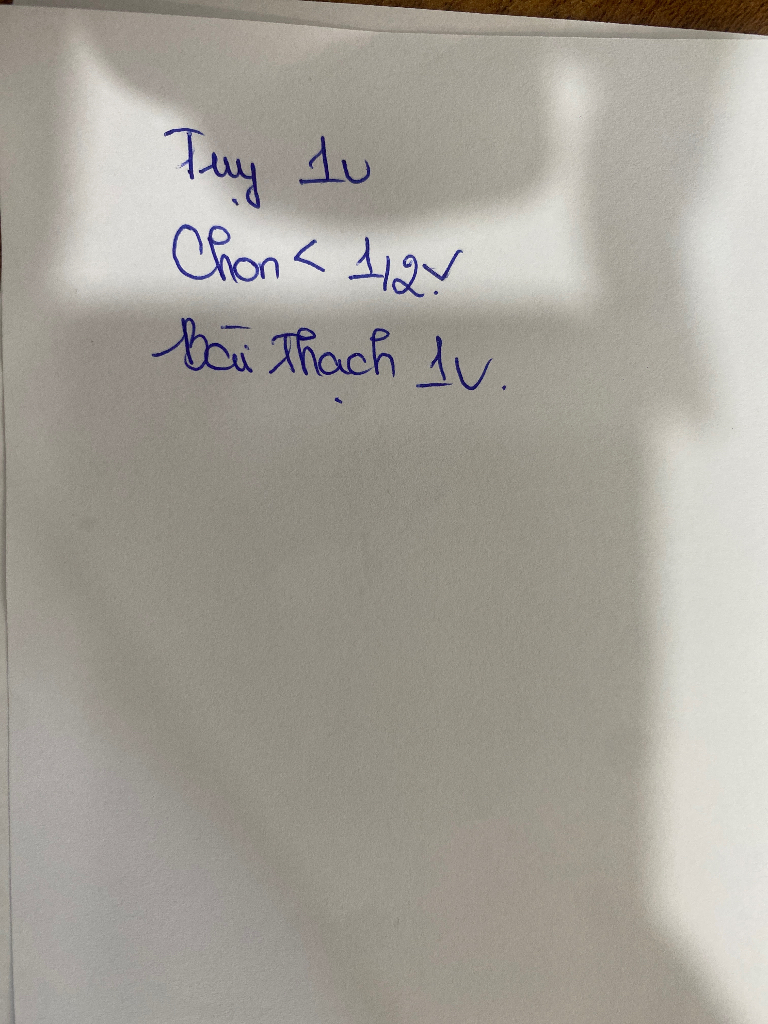 Tụy 1v
Chon < 1/2v.
Bài Thạch 1v.